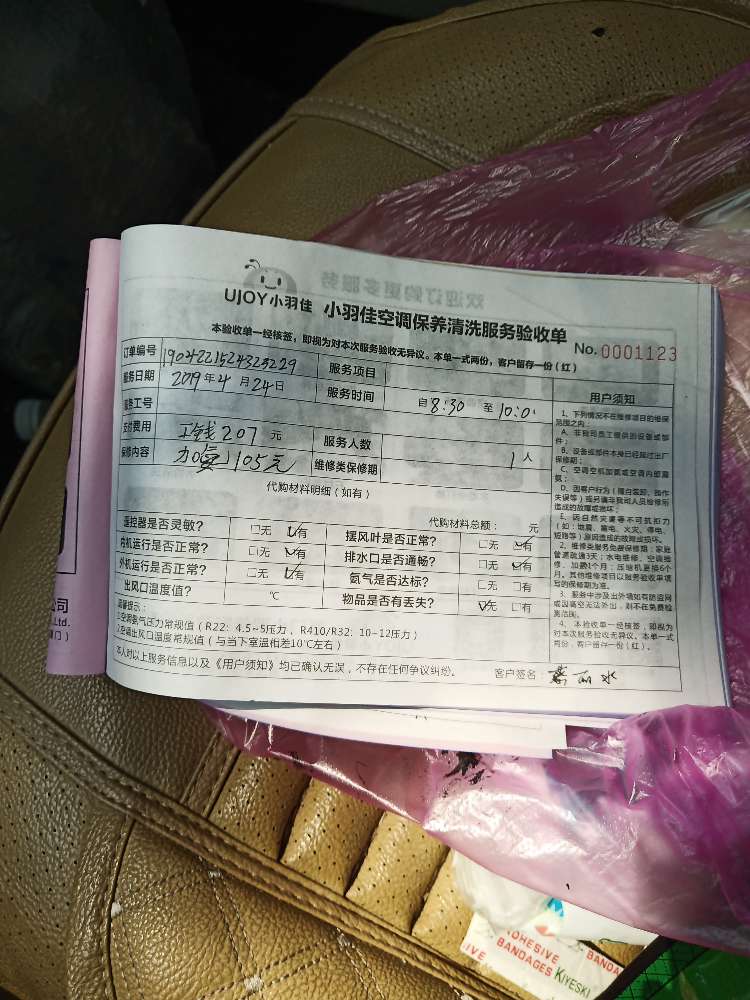 UJOY小羽佳 小羽佳空调保养清洗服务验收单
本验收单一经核签，即视为对本次服务验收无异议。本单一式两份，客户留存一份（红）
No.0001123
订单编号 1904221524325229 服务项目
服务日期 2019年4月24日 服务时间 自8:30至10:0
服务工号
支付费用 工钱207元 服务人数 1人
保修内容 加氟105元 维修类保修期
代购材料明细（如有）
代购材料总额： 元
遥控器是否灵敏？ □无 ☑有 摆风叶是否正常？ □无 ☑有
内机运行是否正常？ □无 ☑有 排水口是否通畅？ □无 ☑有
外机运行是否正常？ □无 ☑有 氨气是否达标？ □无 □有
出风口温度值？ ℃ 物品是否有丢失？ ☑无 □有
温馨提示：
①空调氨气压力常规值（R22：4.5~5压力，R410/R32：10-12压力）
②空调出风口温度常规值（与当下室温相差10℃左右）
本人对以上服务信息以及《用户须知》均已确认无误，不存在任何争议纠纷。 客户签名：
用户须知
1、下列情况不在维修项目的维保
范围之内：
A、非我司员工提供的设备或部
件；
B、设备或部件本身已经超过出厂
保修期；
C、空调空机加氨或空调内部漏
氨；
D、因客户行为（擅自装卸、操作
失误等）或另请非我司人员检修所
造成的故障或损坏；
E、因自然灾害等不可抗力
（如：地震、雷电、火灾、停电、
短路等）原因造成的故障或损坏。
2、维修类服务免费保修期：家庭
管道疏通3天；水电维修、空调维
修、加氨1个月；压缩机更换6个
月。其他维修项目以服务验收单填
写的保修期为准。
3、服务中涉及出外墙如有防盗网
或因高空无法外出，则不在免费检
测范围。
4、本验收单一经核签，即视为
对本次服务验收无异议。本单一式
两份，客户留存一份（红）。
欢迎订购更多服务
公司
Ltd.
门）
OHESIVE
BANDAGES KIYESKI
IVE
BANDA